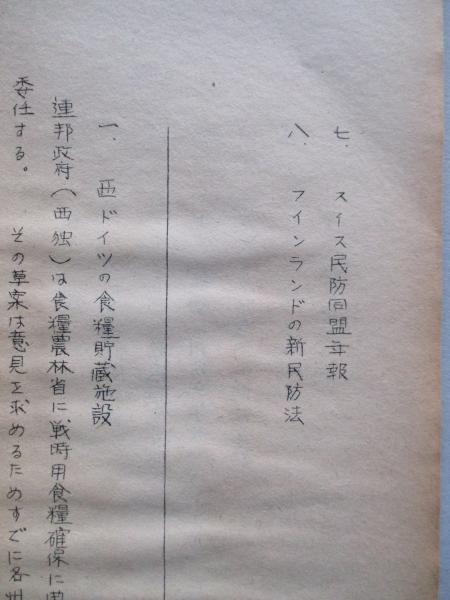 七、 スイス民防同盟年報
八、 フインランドの新民防法
一、 西ドイツの食糧貯蔵施設
連邦政府（西独）は食糧農林省に戦時用食糧確保に
委任する。 その草案は意見を求めるためすでに各州